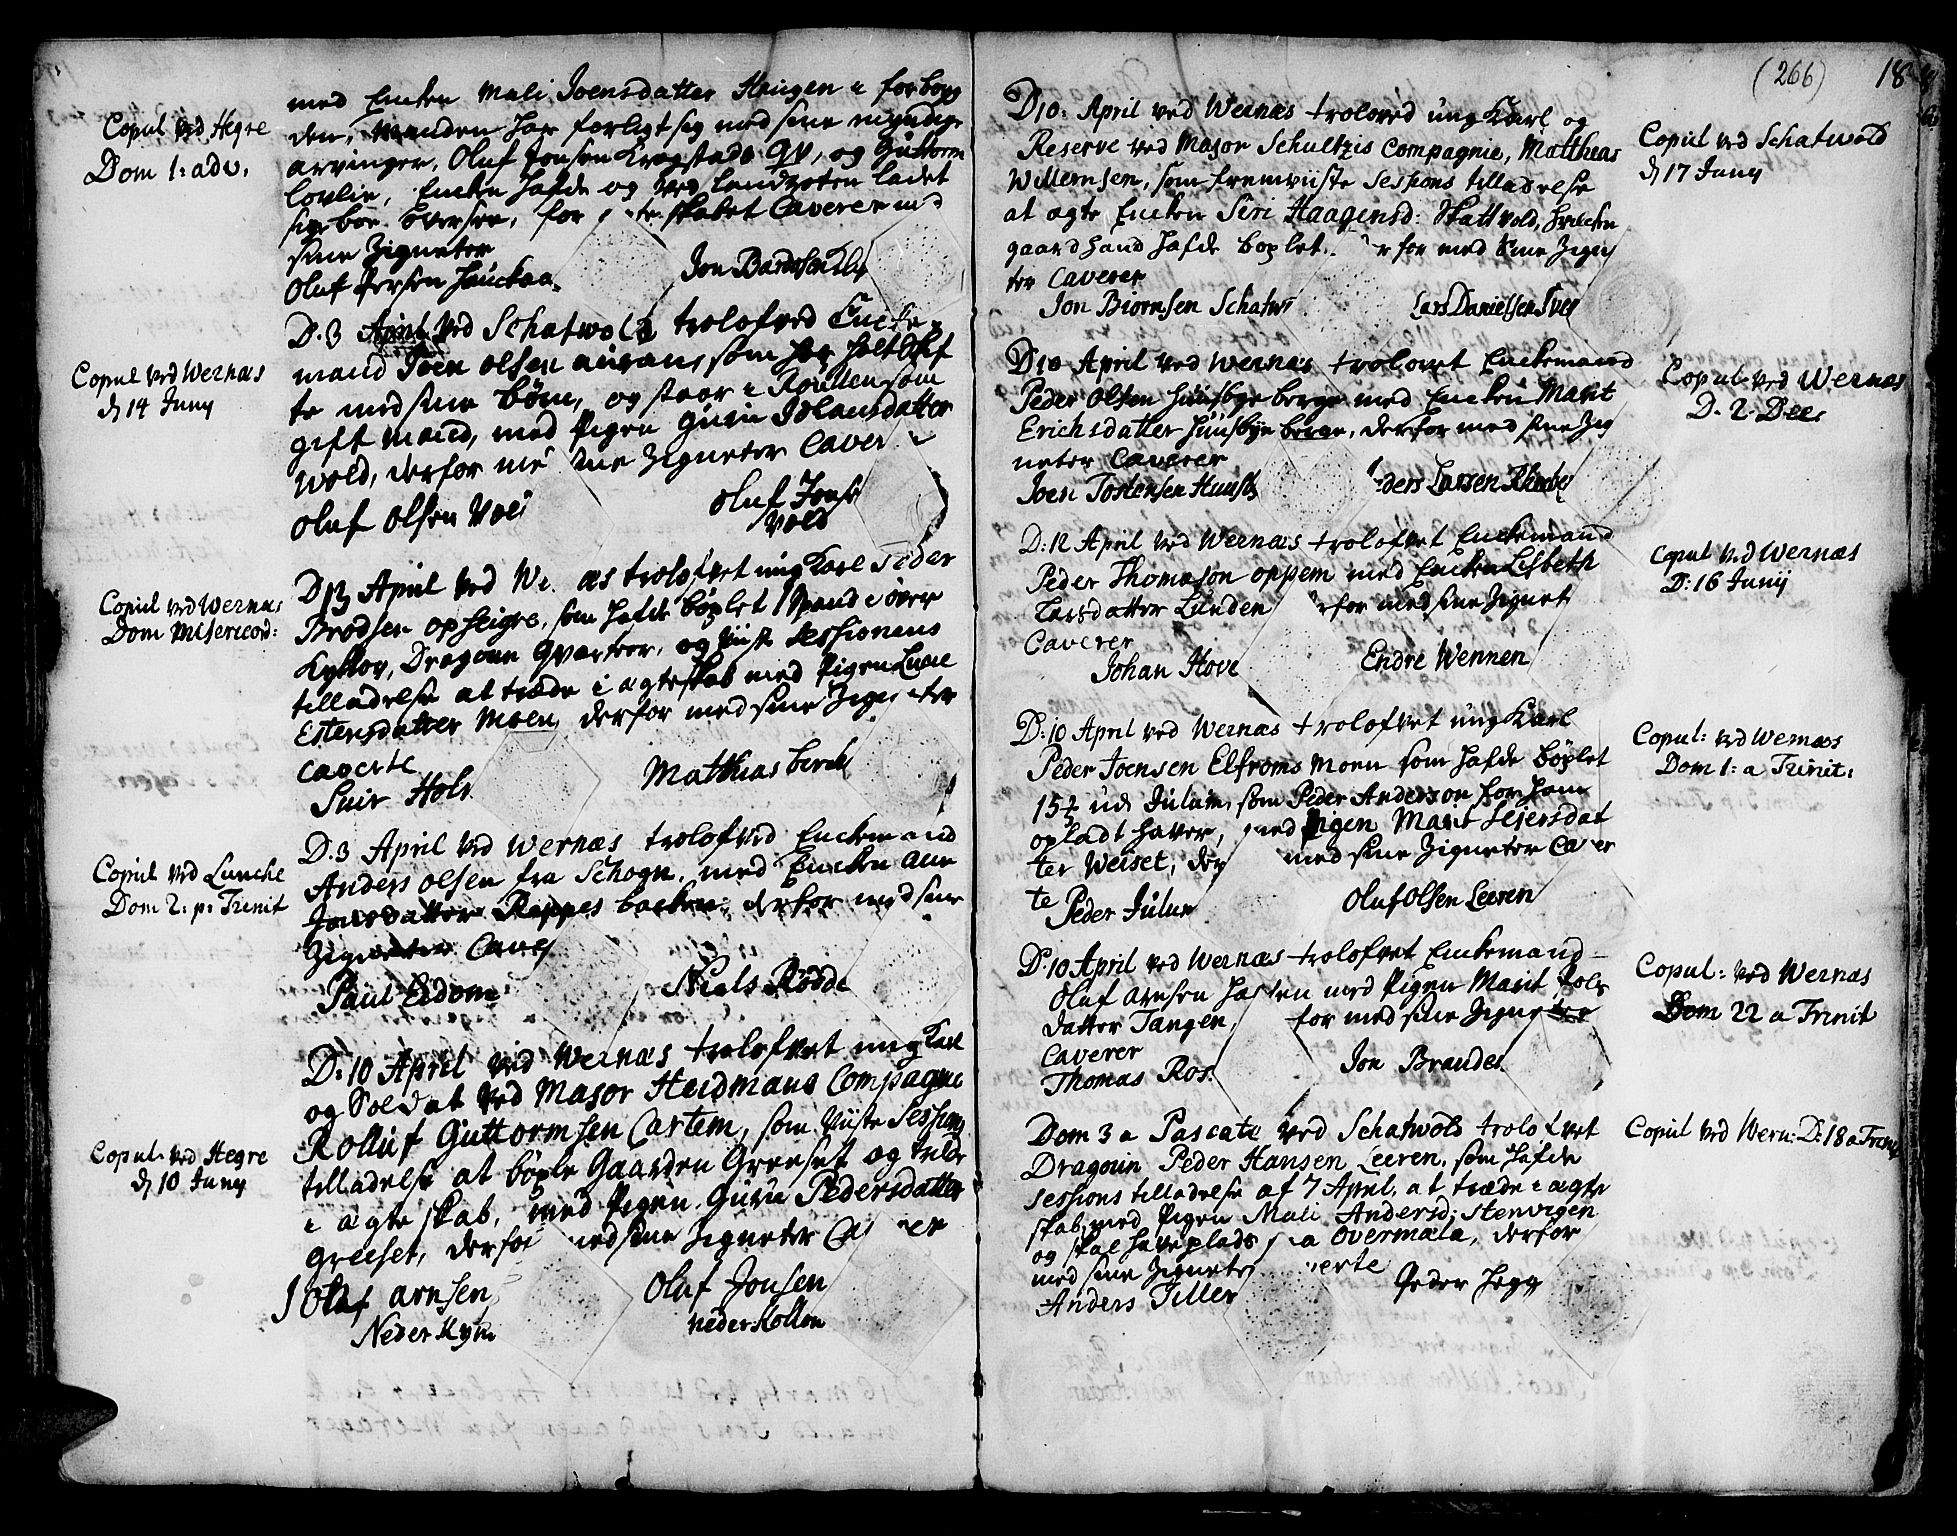 Copul ved Hegre
Dom 1: adv.
med Encken Mali Joensdatter Haugen i forbøyg
den, Manden har forligt sig med sine myndige
arvinger, Oluf Jonsen Krogstads Gv, og Guttorm
lovlie, Encken hafde og ved Landzoten ladet
sig boe oversee, for skabet Caverer med
sine Zigneter
Oluf Persen Hauckaa Jon Bardosen
Copul ved Wernæs
d 14 Juny
D. 3 April ved Schatwold trolofved Encke
mand Joen Olsen auran, som har holt skif
te med sine børn, og staar i Roullen som
gift Mand, med Pigen Guru Johansdatter
Wold, derfor sine Zigneter Caver
Oluf Olsen Vol Oluf Jons
Vold
Copul ved Wernæs
Dom Misericord:
D 13 April ved We næs trolofvet ung Karl Peder
Brodsen opheigre, som hafde bøxlet 1 Spand i øver
Kyllov, Dragoun Qvarteer, og viiste Sessionens
tilladelse at træde i ægteskab med Pigen Lucie
Estensdatter Moen, derfor med sine Zigneter
caverte
Siur Hols Matthias berch
Copul ved Luncke
Dom 2: p: Trinit
D. 3 April ved Wernæs trolofved Enckemand
Anders Olsen fra Schogn, med Encken ane
Jonsdatter Reppes backen, derfor med sine
Zigneter Cave
Paul Eidom Niels Rödde
Copul ved Hegre
d 10 Juny
D: 10 April ved Wernæs trolofvet ung Karl
og Soldat ved Major Heidmans Compagnie
Rolluf Guttormsen Cartem, som viiste Sessions
tilladelse at bøxle Gaarden Greeset og træde
i ægteskab, med Pigen Guru Pedersdatter
Greeset, derfor med sine Zigneter Ca er
Oluf arnsen Oluf Jonsen
Neder Kyll neder Kollon
(266) 18
D 10: April ved Wernæs troloved ung Karl og
Reserve ved Major Schultzis Compagnie, Matthias
Willemsen, som fremviiste Sessions tilladelse
at ægte Encken Siri Haagensd: Skattvold, hvilcken
gaard hand hafde boxlet. for med sine Zigne
ter Caverer
Jon Biørnsen Schatw Lars Danielssen Sve
Copul ved Schatwold
d 17 Juny
D 10 April ved Wernæs trolovet Enckemand
Peder Olsen Huusbye berge med Encken Marit
Erichsdatter Huusbye berge, derfor med sine Zig
neter Caverer
Joen Tostensen Huusb ders Larsen Rhabe
Copul ved Wernæs
D. 2 Dec.
D: 12 April ved Wernæs trolofvet Enckemand
Peder Thomason oppem med Encken Lisbeth
Larsdatter Lunden for med sine Zignet
Caverer
Johan Hove Endre Wennen
Copul ved Wernæs
D: 16 Junij
D: 10 April ved Wernæs trolofvet ung Karl
Peder Joensen Elfroms Moen som hafde bøxlet
15 1/2 ud Julum, som Peder Anderson for ham
opladt haver, med Pigen Marit Sejersdat
ter Weiset, der med sine Zigneter Caver
te Peder Julum Oluf Olsen Leeren
Copul: ved Wernæs
Dom 1: a Trinit:
D. 10 April ved Wernæs trolofvet Enckemand
Oluf Arnsen med Pigen Marit Pols
datter Tangen, for med sine Zigneter
Caverer
Thomas Ros. Jon Brandes
Copul: ved Wernæs
Dom 22 a Trinit
Dom 3 a Pascate ved Schatwols trolofvet
Dragoun Peder Hansen Leeren, som hafde
Sessions tilladelse af 7 April, at træde i ægte
skab, med Pigen Mali Andersd: Stenvigen
og skal have plads Overmala, derfor
med sine Zignete verte
Anders Tiller Peder Hegg
Copul ved Wern: D: 18 a Trinit